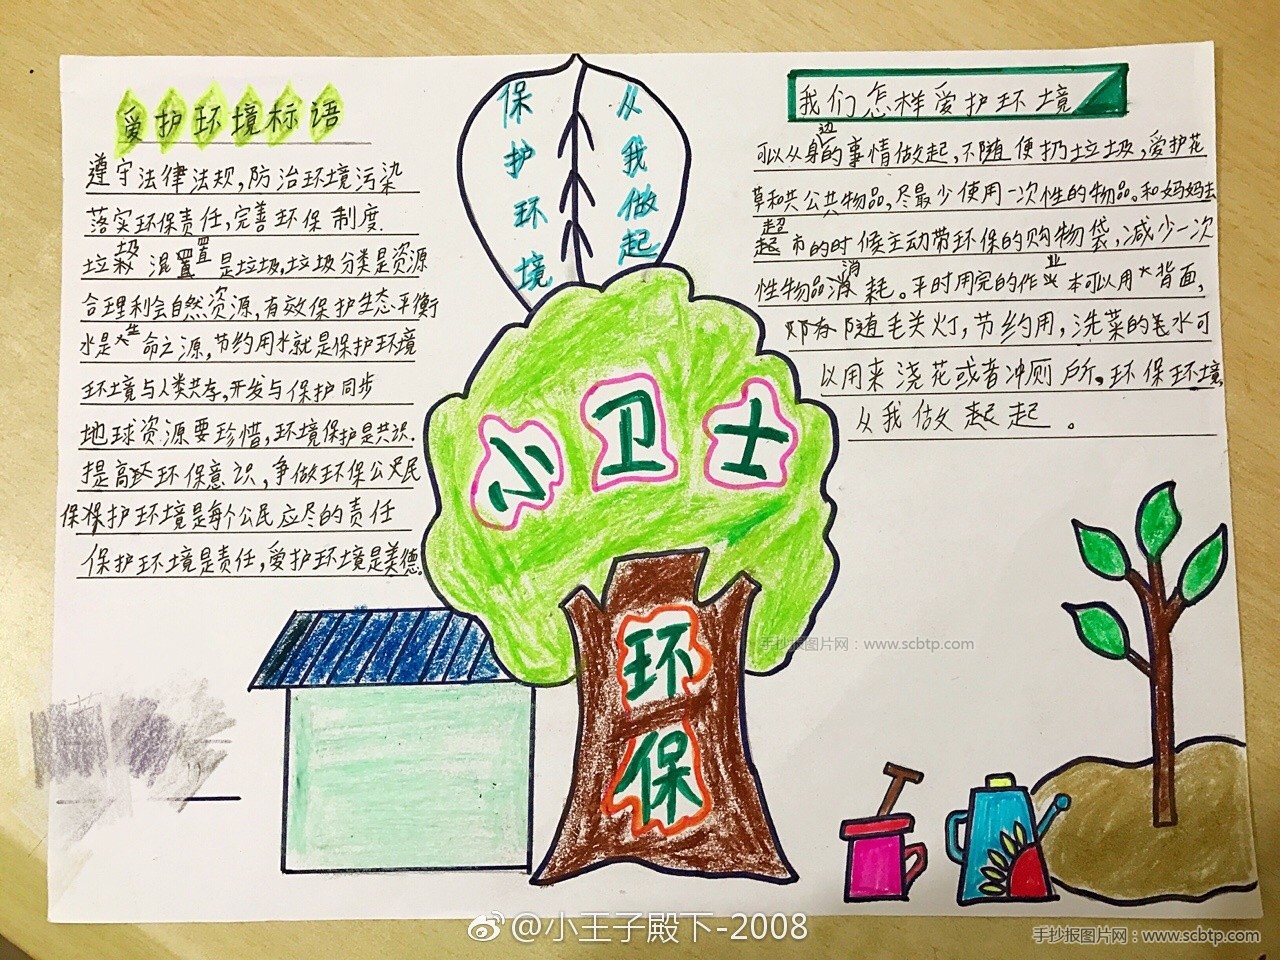 爱护环境标语
遵守法律法规,防治环境污染
落实环保责任,完善环保制度.
垃圾混置是垃圾,垃圾分类是资源
合理利会自然资源,有效保护生态平衡
水是生命之源,节约用水就是保护环境
环境与人类共存,开发与保护同步
地球资源要珍惜,环境保护是共识.
提高环保意识,争做环保公民
保护环境是每个公民应尽的责任
保护环境是责任,爱护环境是美德。
保护环境
从我做起
小卫士
环保
我们怎样爱护环境
可以从身边的事情做起,不随便扔垃圾,爱护花
草和共公共物品,尽最少使用一次性的物品。和妈妈去
超市的时候主动带环保的购物袋,减少一次
性物品消耗。平时用完的作业本可以用背面,
随毛关灯,节约用,洗菜的水可
以用来浇花或者冲厕所。环保环境
从我做起。
手抄报图片网：www.scbtp.com
@小王子殿下-2008
手抄报图片网：www.scbtp.com